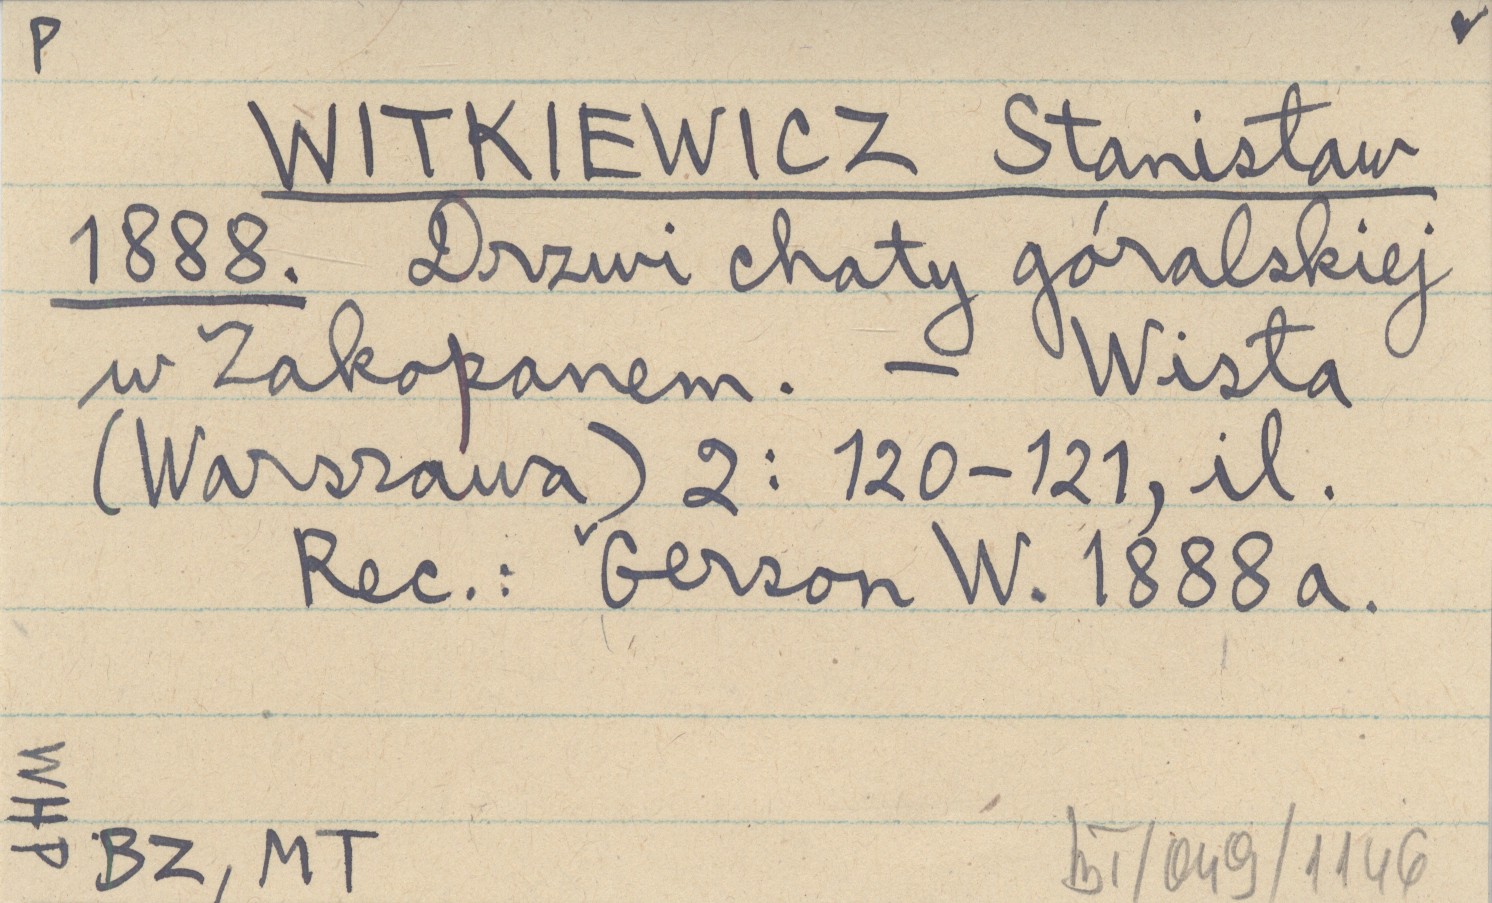 P
WITKIEWICZ Stanisław
1888. Drzwi chaty góralskiej
w Zakopanem. – Wisła
(Warszawa) 2: 120–121, il.
Rec.: Gerson W. 1888a.
WHP
BZ, MT
/049/1146